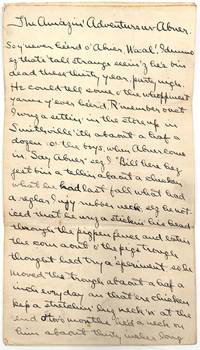 The Amazin' Adventures uv Abner.
So y' never heird o' Abner Waal', I dunno
ez thet's tall strange seein'z he's bin
dead these thirty year, purty nigh.
He could tell some o' the whoppinest
yarns y' ever heird. Remember onct
I wuz a settin' in the store up in
Smithville 'ith abaout a haf a
dozen o' the boys, when Abner come
in. Say Abner sez I "Bill here hez
jest bin a tellin abaout a chicken
what he had last fall what had
a reglar Injy rubber neck. sez he not-
iced thet he wuz a stickin' his head
through the pigpen fence and eatin
the corn aout o' the pigs trough
thought he'd try a 'speriment, so he
moved the trough abaout a haf a
inch every day an' thet ere chicken
kep a stretchin' his neck 'n' at the
end o' two months he'd a neck on
him abaout thirty inches long